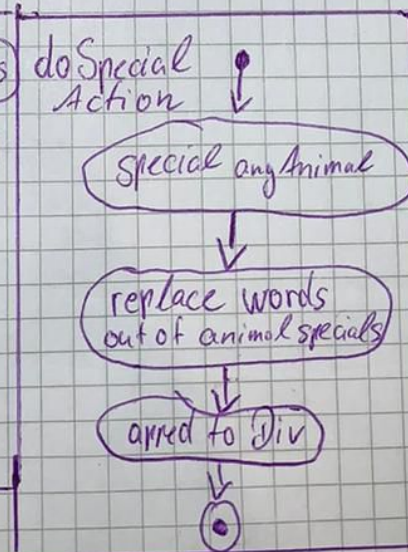 s
doSpecial
Action
special anyAnimal
replace words
out of animal specials
to Div